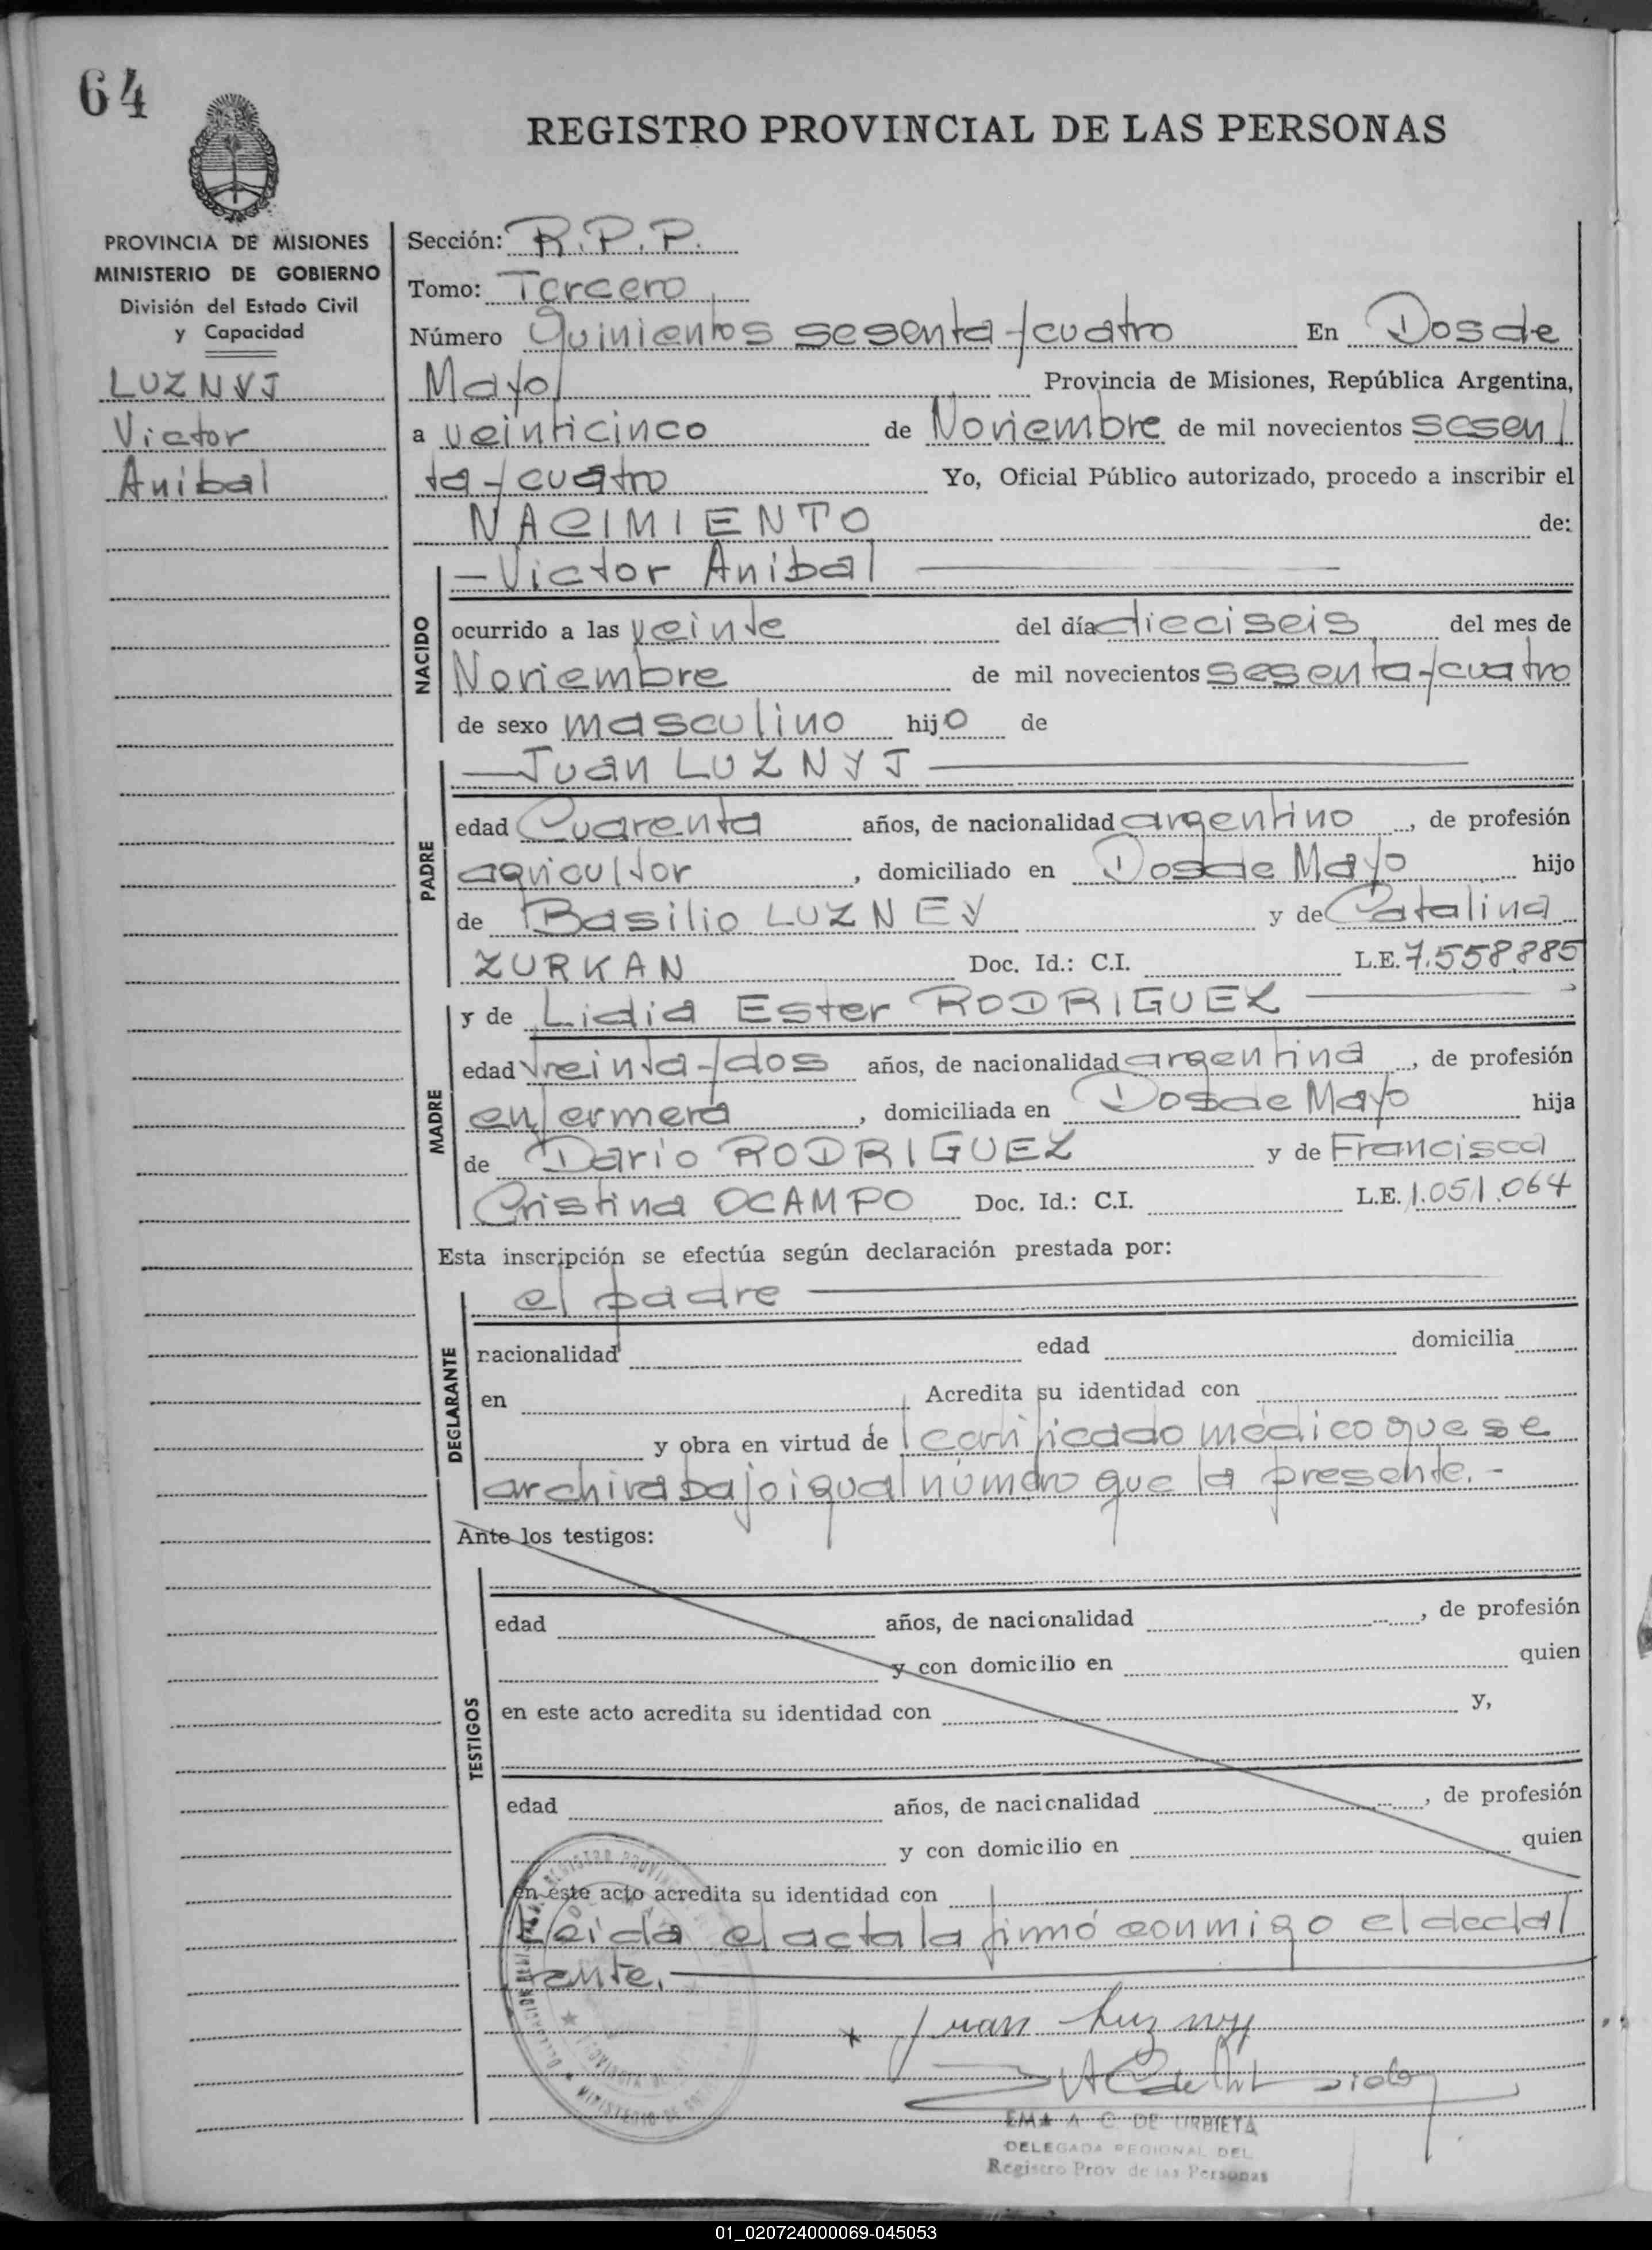 64
REGISTRO PROVINCIAL DE LAS PERSONAS
PROVINCIA DE MISIONES
MINISTERIO DE GOBIERNO
División del Estado Civil
y Capacidad
LUZNYJ
Victor
Anibal
Sección: R.P.P.
Tomo: Tercero
Número Quinientos sesenta y cuatro En Dos de
Mayo Provincia de Misiones, República Argentina,
a veinticinco de Noviembre de mil novecientos sesen
ta y cuatro Yo, Oficial Público autorizado, procedo a inscribir el
NACIMIENTO de:
NACIDO
—Victor Anibal—
ocurrido a las veinte del día dieciseis del mes de
Noviembre de mil novecientos sesenta y cuatro
de sexo masculino hijo de
PADRE
—Juan LUZNYJ—
edad Cuarenta años, de nacionalidad argentino, de profesión
agricultor, domiciliado en Dos de Mayo hijo
de Basilio LUZNEY y de Catalina
ZURKAN Doc. Id.: C.I. L.E. 7.558.885
MADRE
y de Lidia Ester RODRIGUEZ—
edad treinta y dos años, de nacionalidad argentina, de profesión
enfermera, domiciliada en Dos de Mayo hija
de Dario RODRIGUEZ y de Francisca
Cristina OCAMPO Doc. Id.: C.I. L.E. 1.051.064
Esta inscripción se efectúa según declaración prestada por:
DECLARANTE
el padre—
nacionalidad edad domicilia
en Acredita su identidad con
y obra en virtud de certificado médico que se
archiva bajo igual número que la presente.-
Ante los testigos:
TESTIGOS
edad años, de nacionalidad , de profesión
y con domicilio en quien
en este acto acredita su identidad con y,
edad años, de nacionalidad , de profesión
y con domicilio en quien
en este acto acredita su identidad con
Leida el acta la firmó conmigo el decla
rante.—
Juan Luznyj
EMA A C. DE URBIETA
DELEGADA REGIONAL DEL
Registro Prov de las Personas
01_020724000069-045053